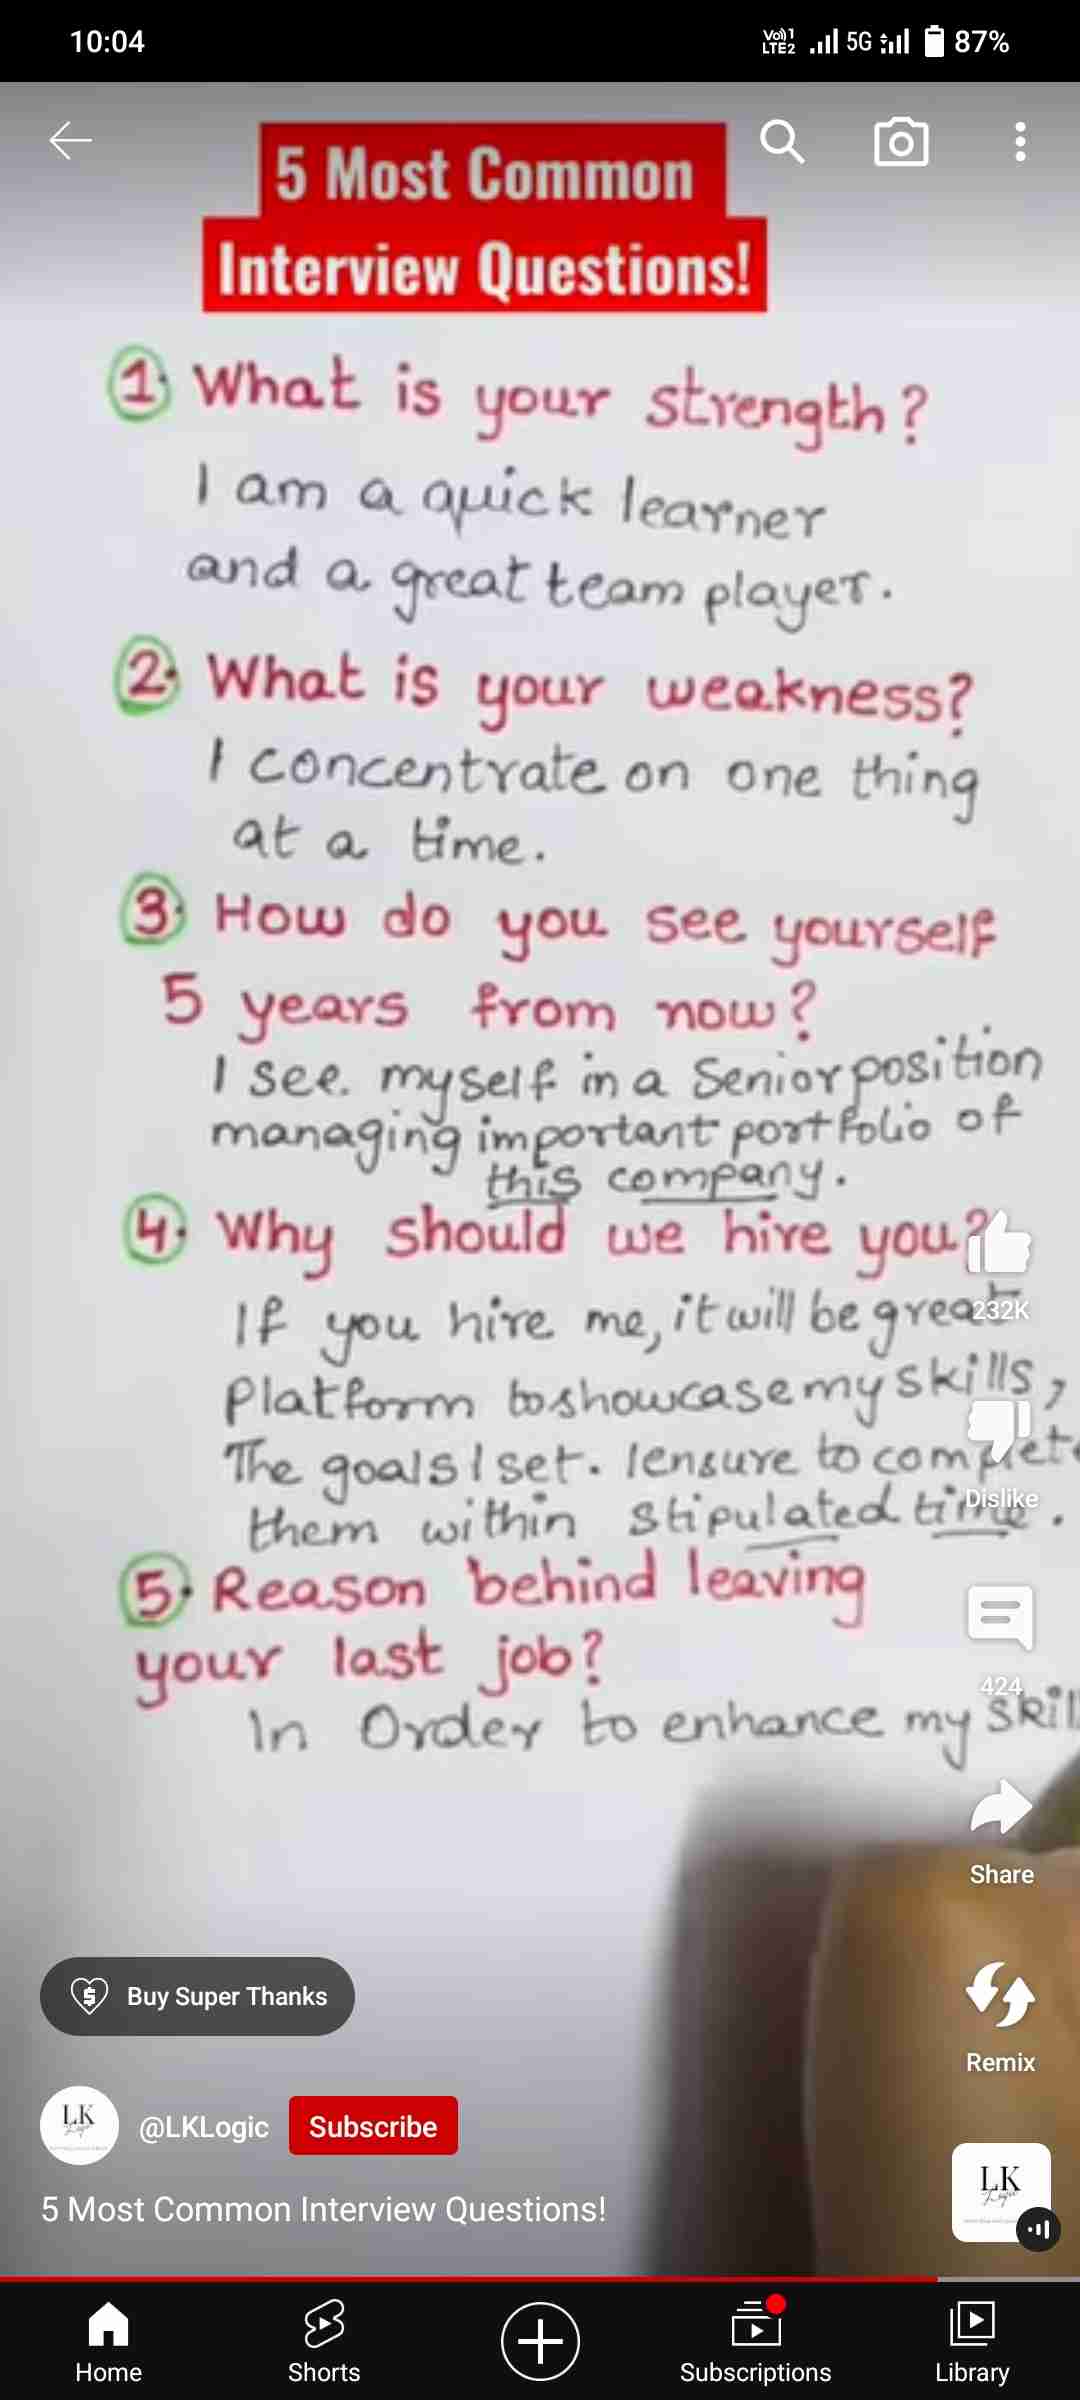 10:04
Vo)) 1
LTE2
5G
87%
5 Most Common
Interview Questions!
1. What is your strength?
I am a quick learner
and a great team player.
2. What is your weakness?
I concentrate on one thing
at a time.
3. How do you see yourself
5 years from now?
I see myself in a Senior position
managing important portfolio of
this company.
4. Why should we hire you?
If you hire me, it will be great
232K
Platform to showcase my skills,
The goals I set. I ensure to complete
Dislike
them within stipulated time.
5. Reason behind leaving
your last job?
424
In Order to enhance my skill
Share
Buy Super Thanks
Remix
LK
@LKLogic
Subscribe
LK
5 Most Common Interview Questions!
Home
Shorts
Subscriptions
Library